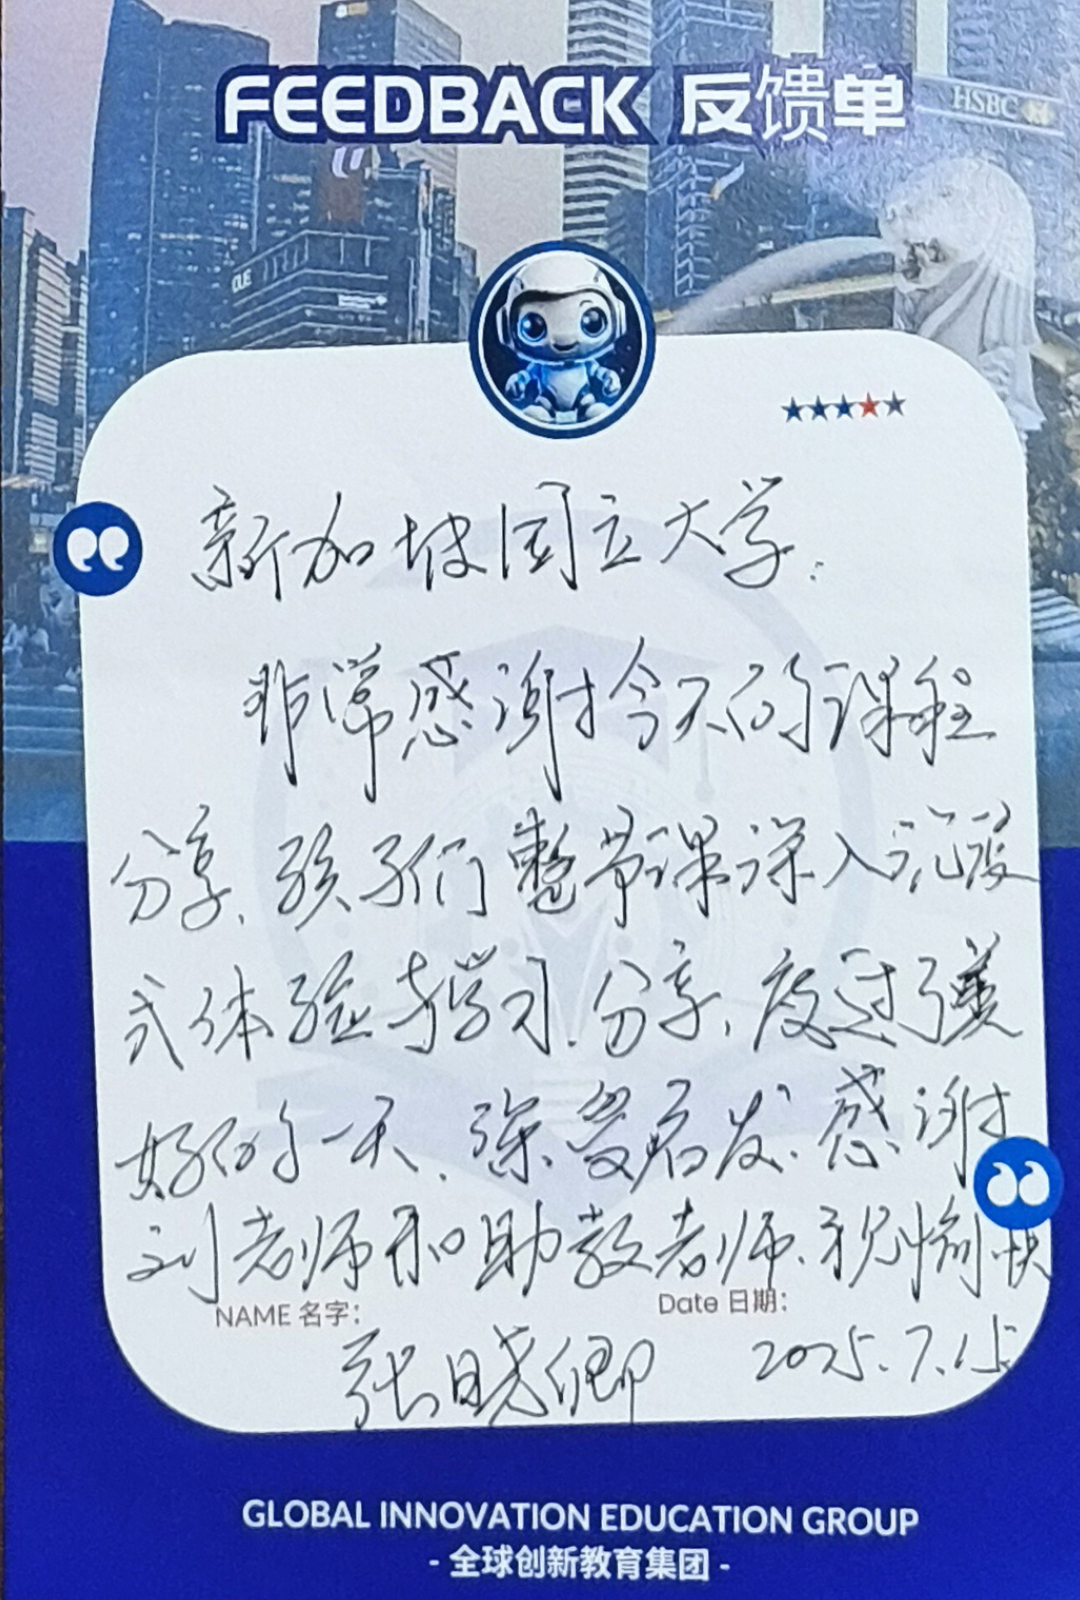 FEEDBACK 反馈单
HSBC
OUE
新加坡国立大学:
非常感谢今天的课程
分享,孩子们整节课深入沉浸
式体验与学习.分享,度过了美
好的一天,深受启发.感谢
刘老师和助教老师.祝愉快
NAME 名字:
Date 日期:
张晓卿
2025.7.15
GLOBAL INNOVATION EDUCATION GROUP
- 全球创新教育集团 -